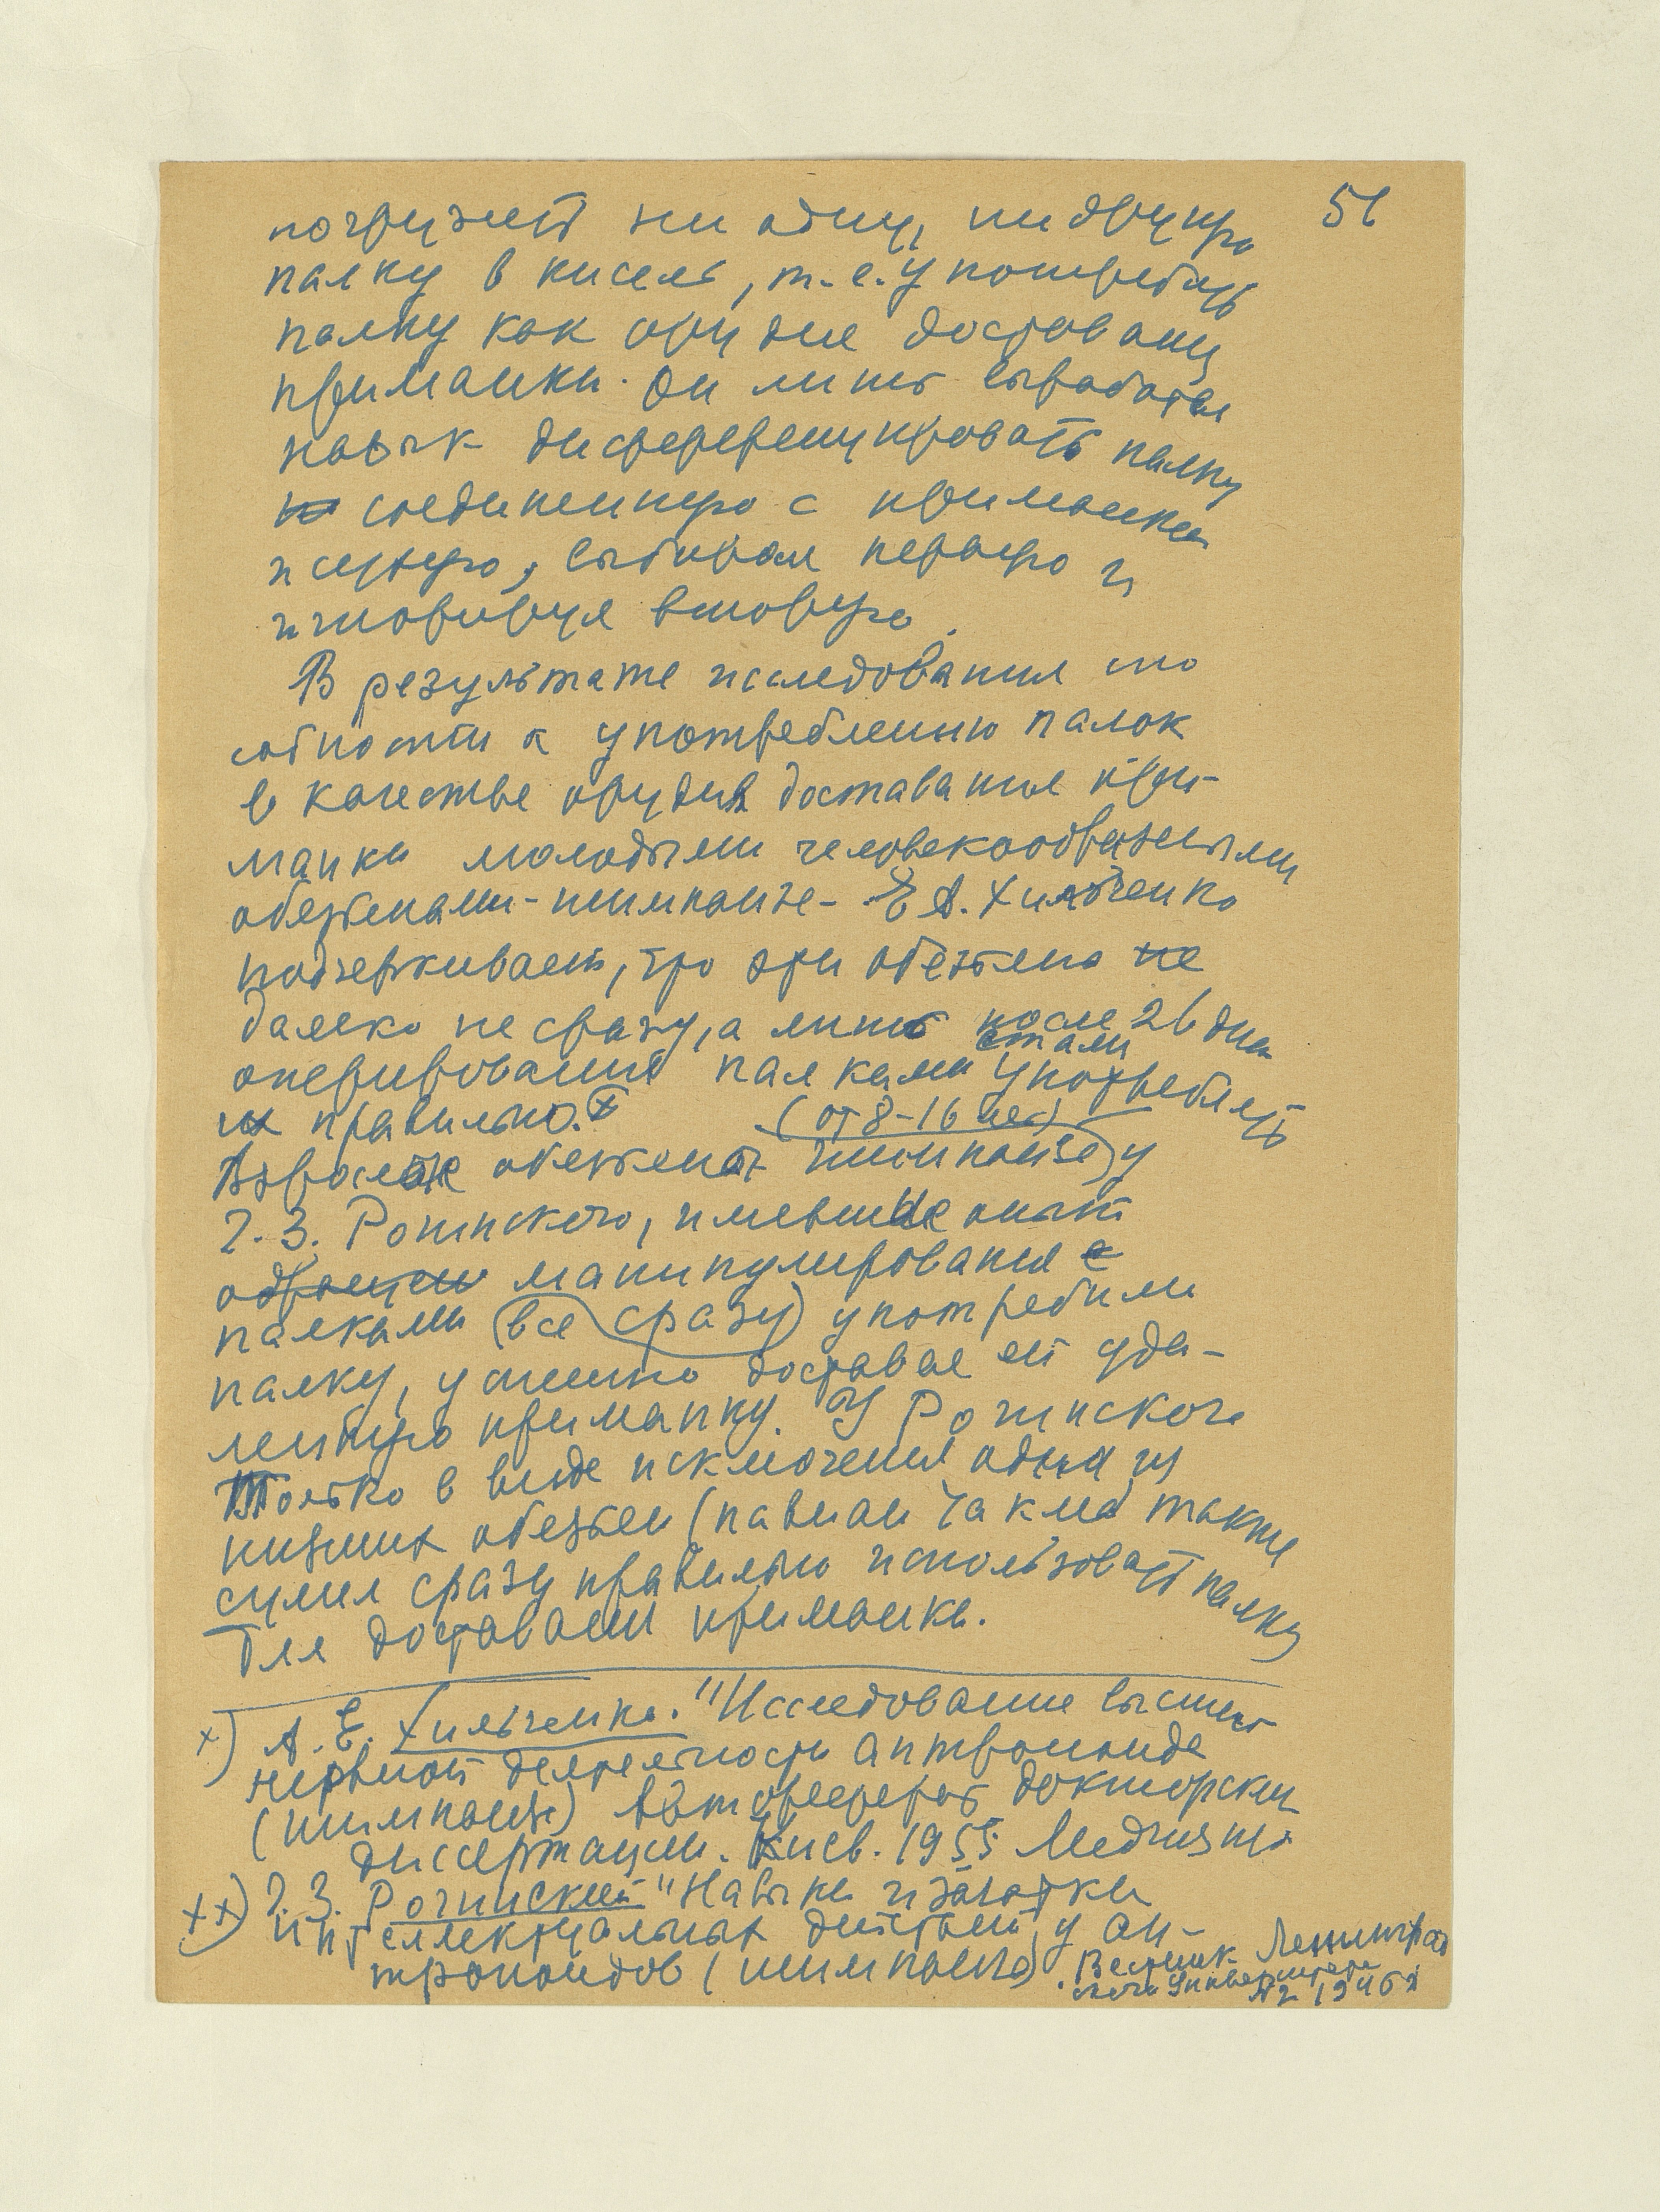 51
погрузить ни одну, ни другую
палку в кисель, т.е. употребить
палку как орудие доставания
приманки. Он лишь выработал
навык дифференцировать палку
соединенную с приманкой
и пустую, выбирая первую и
игнорируя вторую.
В результате исследования спо
собности к употреблению палок
в качестве орудия доставания при-
манки молодыми человекообразными
обезьянами - шимпанзе - Е А. Хильченко
подчеркивает, что эти обезьяны не
далеко не сразу, а лишь после 26 дней
оперирования палками стали употреблять
их правильно. x
(от 8-16 лет)
Взрослые обезьяны шимпанзе у
Г. З. Рогинского, имевшие опыт
обращен манипулирования с
палками (все сразу) употребили
палку, успешно доставая ей уда-
ленную приманку. У Рогинского
только в виде исключения одна из
низших обезьян (павиан Чакма) также
сумел сразу правильно использовать палку
для доставания приманки.
x) А. Е. Хильченко. "Исследование высшей
нервной деятельности антропоида
(шимпанзе) Автореферат докторской
диссертации. Киев. 1955 Медгиз
xx) Г. З. Рогинский "Навыки и зачатки
интеллектуальных действий у ан-
тропоидов (шимпанзе)
. Вестник Ленинград
ского Университета
№2 1946 г